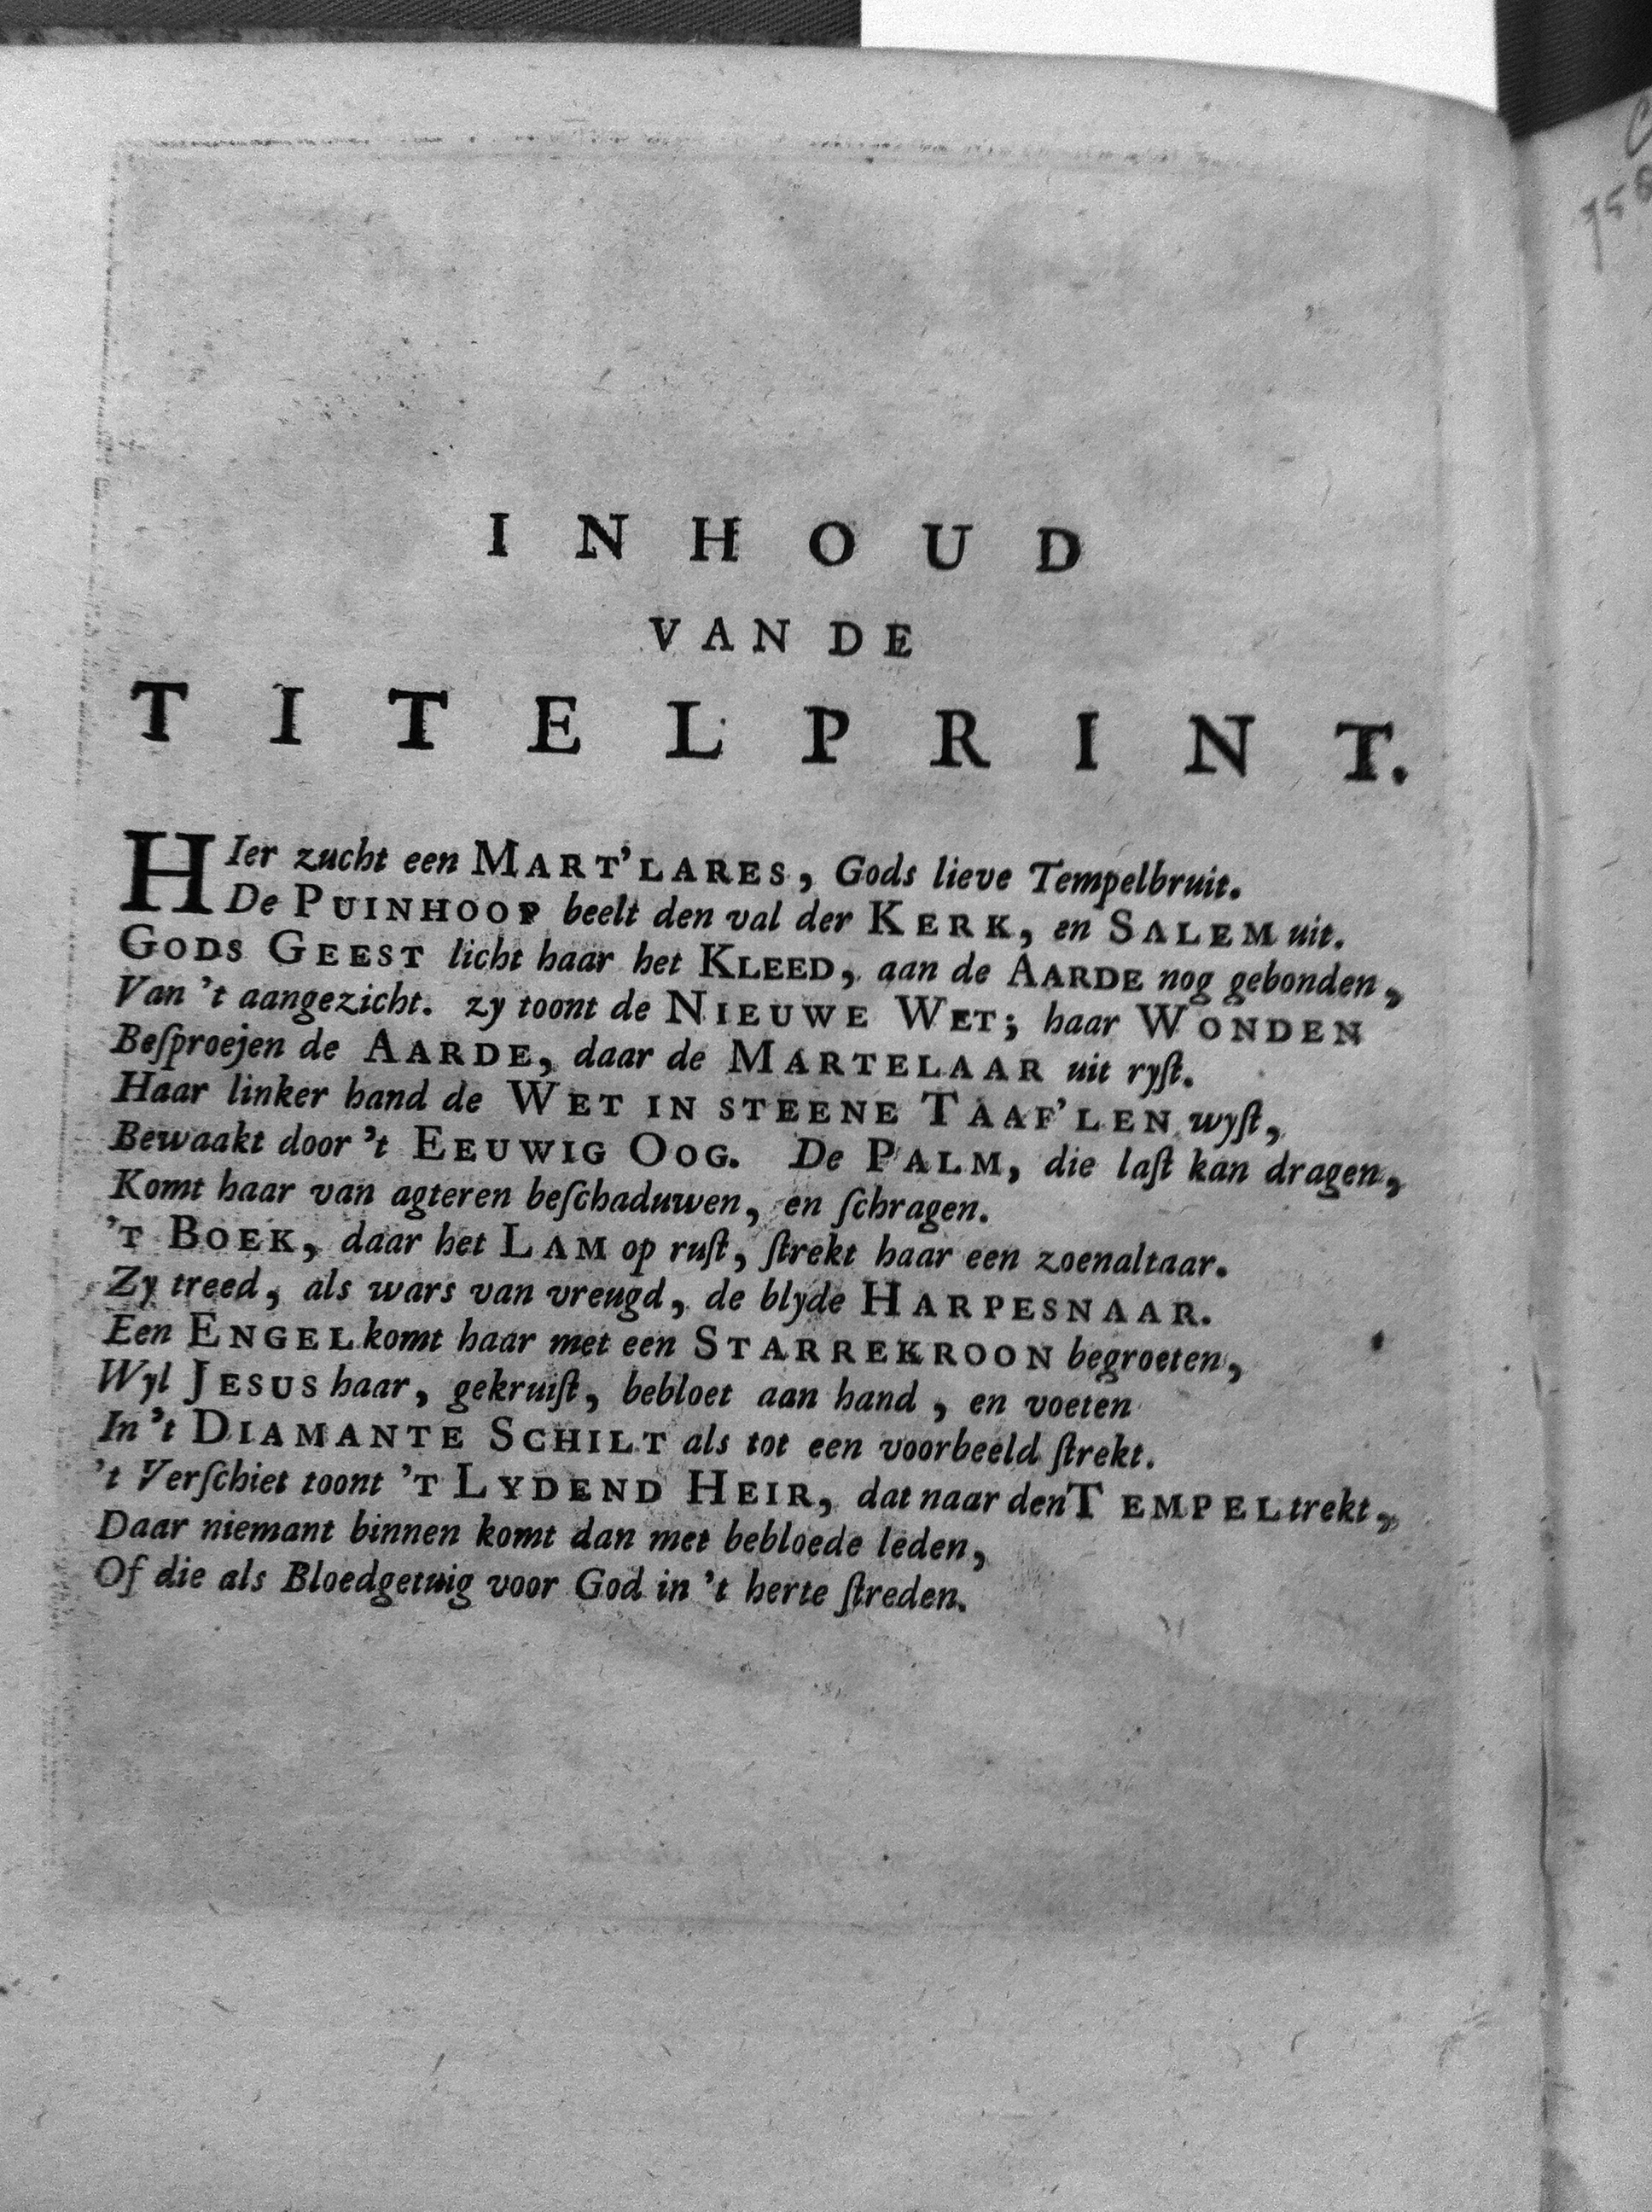 INHOUD
VAN DE
TITELPRINT.
HIer zucht een MART'LARES, Gods lieve Tempelbruit.
De PUINHOOP beelt den val der KERK, en SALEM uit.
GODS GEEST licht haar het KLEED, aan de AARDE nog gebonden,
Van 't aangezicht. zy toont de NIEUWE WET; haar WONDEN
Beſproejen de AARDE, daar de MARTELAAR uit ryſt.
Haar linker hand de WET IN STEENE TAAF'LEN wyſt,
Bewaakt door 't EEUWIG OOG. De PALM, die laſt kan dragen,
Komt haar van agteren beſchaduwen, en ſchragen.
'T BOEK, daar het LAM op ruſt, ſtrekt haar een zoenaltaar.
Zy treed, als wars van vreugd, de blyde HARPESNAAR.
Een ENGEL komt haar met een STARREKROON begroeten,
Wyl JESUS haar, gekruiſt, bebloet aan hand, en voeten
In 't DIAMANTE SCHILT als tot een voorbeeld ſtrekt.
't Verſchiet toont 'T LYDEND HEIR, dat naar den TEMPEL trekt,
Daar niemant binnen komt dan met bebloede leden,
Of die als Bloedgetuig voor God in 't herte ſtreden.